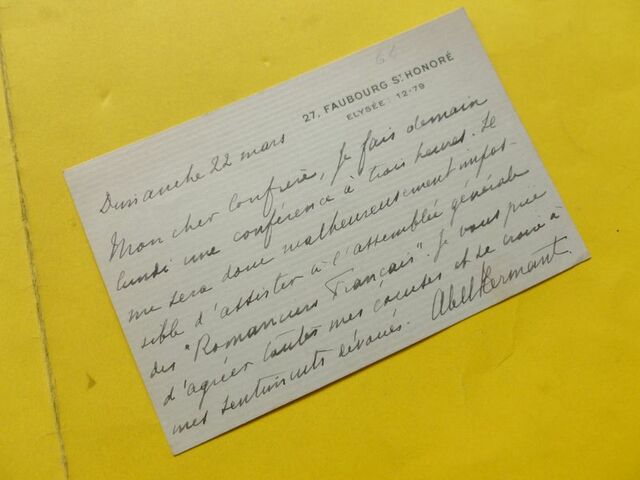 64
27, FAUBOURG ST HONORÉ
ELYSÉE: 12-79
Dimanche 22 mars
Mon cher Confrère, je fais demain
lundi une conférence à trois heures. Il
me sera donc malheureusement impos-
sible d'assister à l'assemblée générale
des "Romanciers Français". Je vous prie
d'agréer toutes mes excuses et de croire à
mes sentiments dévoués. Abel Hermant.